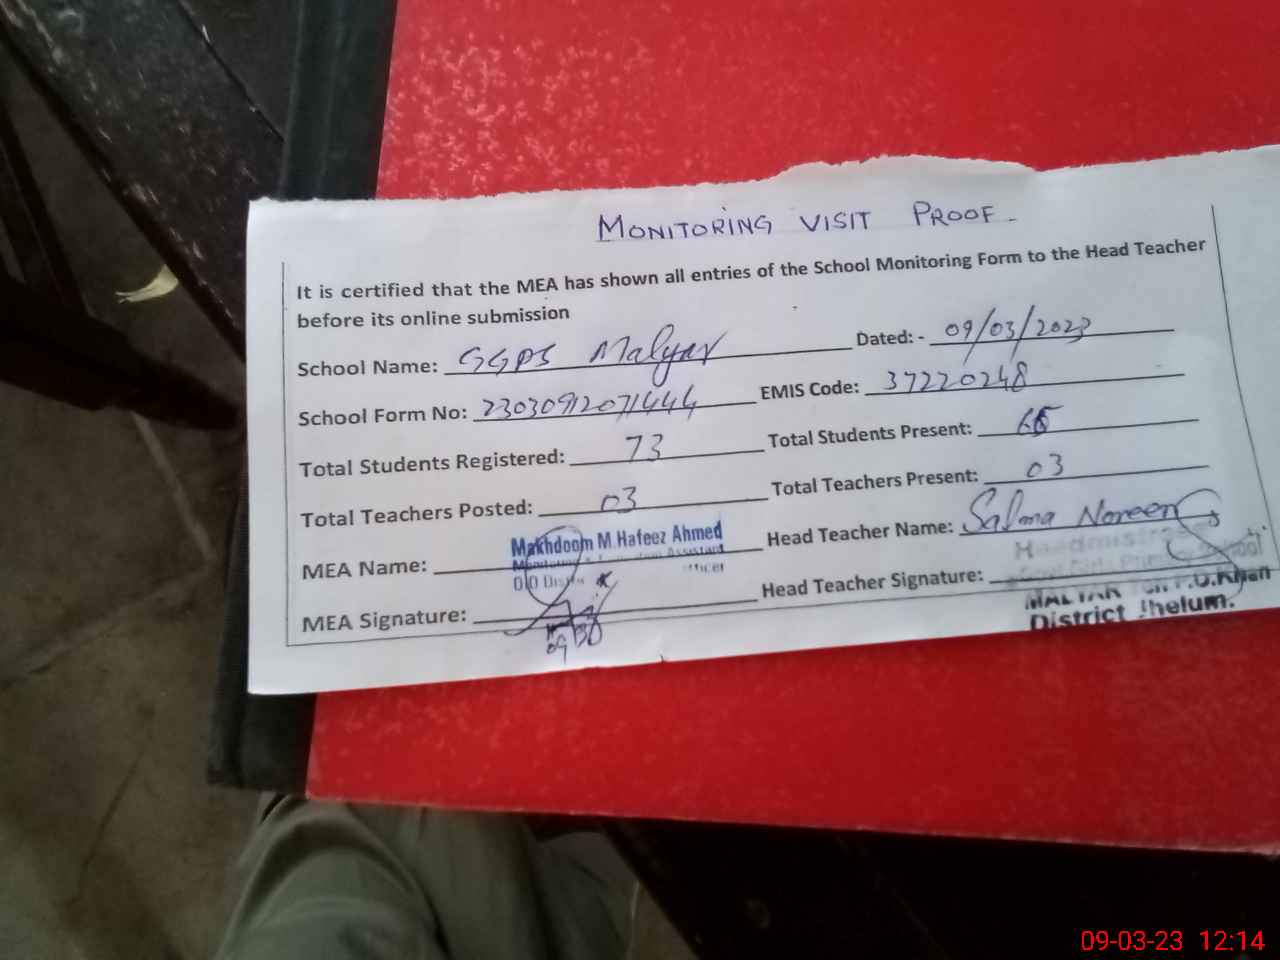 MONITORING VISIT PROOF -
It is certified that the MEA has shown all entries of the School Monitoring Form to the Head Teacher
before its online submission
School Name: GGPS Malyar Dated: - 09/03/2023
School Form No: 23030912071444 EMIS Code: 37220248
Total Students Registered: 73 Total Students Present:
Total Teachers Posted: 03 Total Teachers Present: 03
MEA Name: Makhdoom M.Hafeez Ahmed Head Teacher Name: Salma Noreen
MEA Signature: Head Teacher Signature:
District Jhelum.
09-03-23 12:14